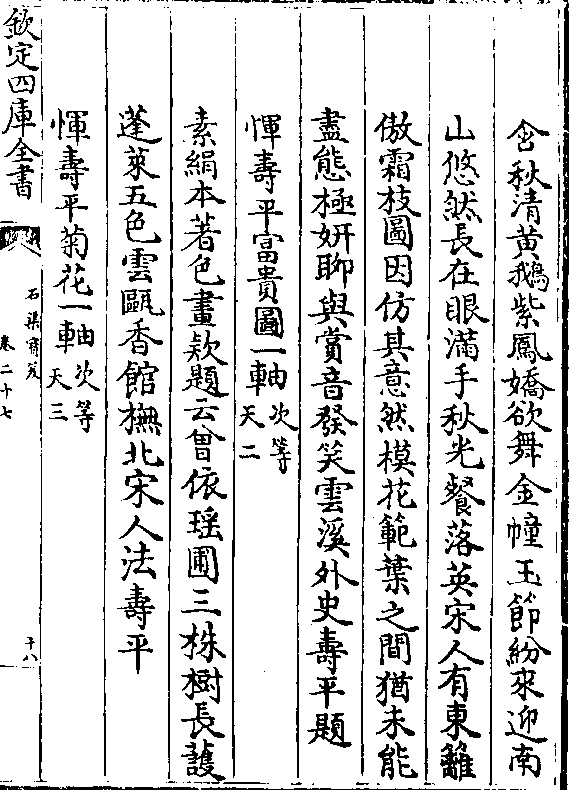 含秋清黄鵝紫鳳嬌欲舞金幢玉節紛來迎南
山悠然長在眼滿手秋光餐落英宋人有東籬
傲霜枝圖因仿其意然模花範葉之間猶未能
盡態極妍聊與賞音發笑雲溪外史壽平題
惲壽平富貴圖一軸次等天二
素絹本著色畫款題云曾依瑶圃三株樹長護
蓬萊五色雲甌香館橅北宋人法壽平
惲壽平菊花一軸次等天三
欽定四庫全書
石渠寳笈
卷二十七
十八